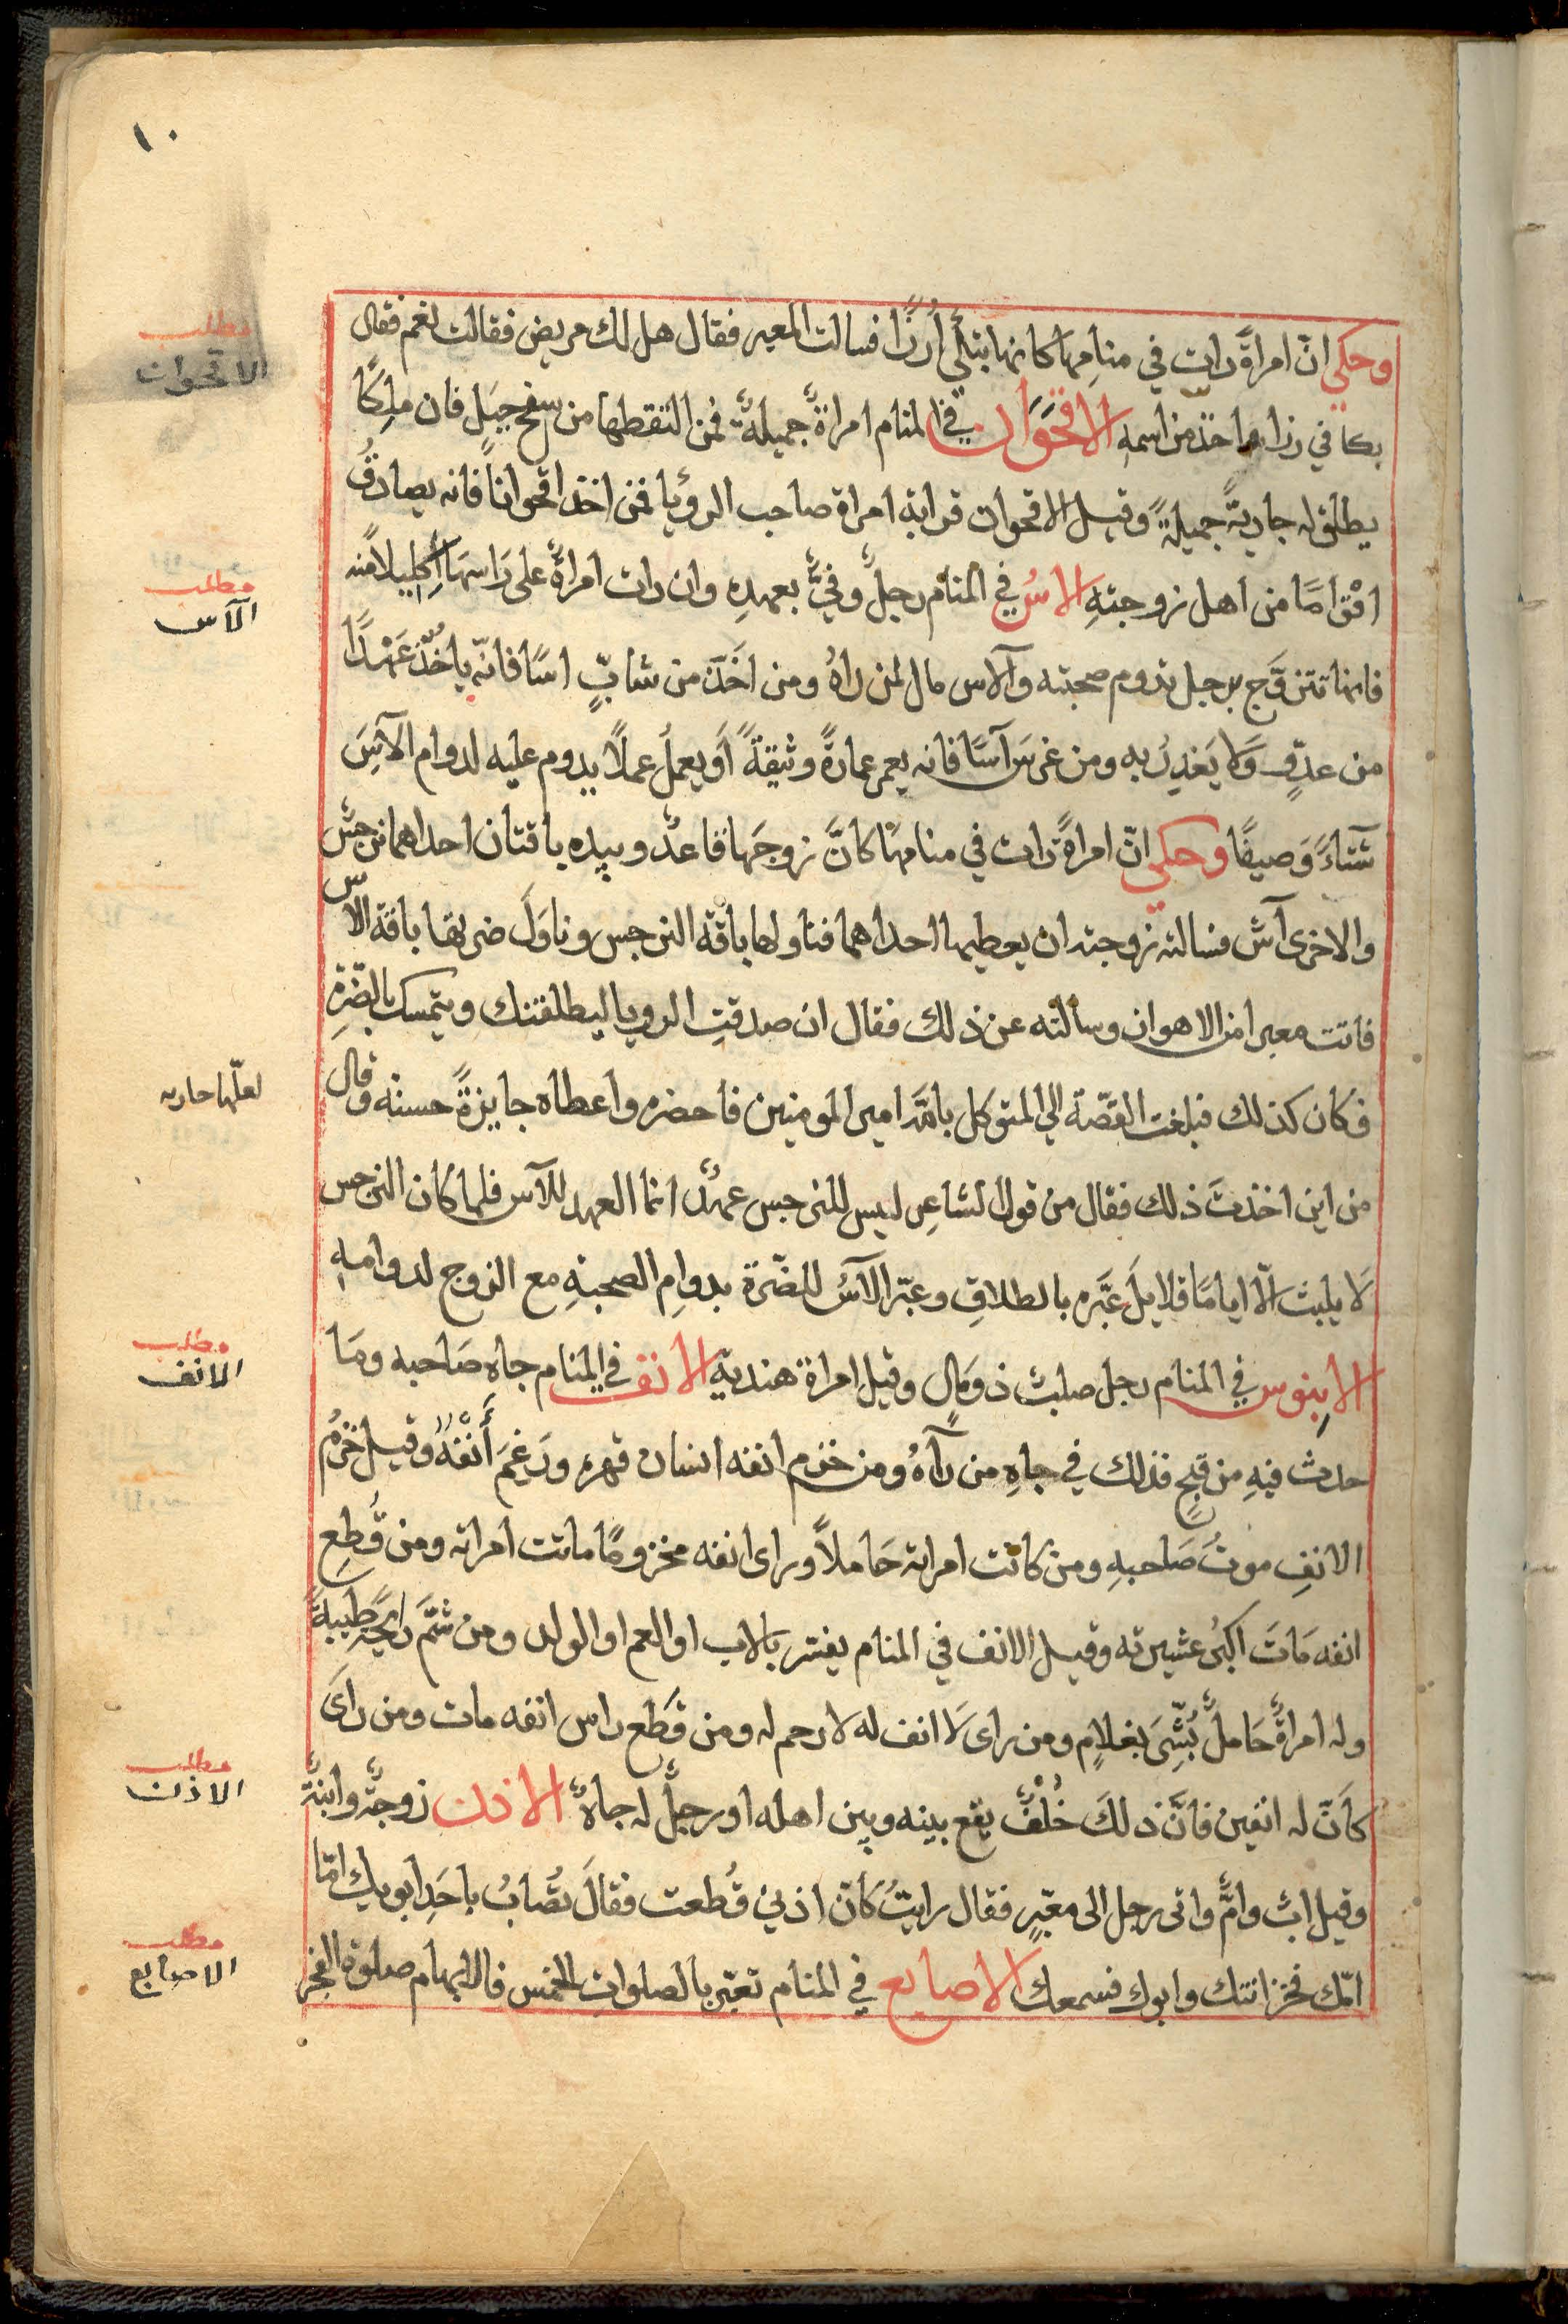 ١٠
وحكي انّ امراةً رات في منامها كانها تبتلي أرزًّا فسالت المعبر فقال هل لك مريض فقالت نعم فقال
اخذ من اسمهِ الاقحَوَان في المنام امراةٌ جميلةٌ فمن التقطها من سفح جبَل فان ملِكًا
يطلق له جاريةً جميلةً وقيل الاقحوان قرابة امراة صاحب الرؤيا فمن اخذ اقحوانًا فانه يصادقُ
اقْوامًا من اهل زوجتهِ الاسُ في المنام رجلٌ وفيٌّ بعهدِهِ وان رات امراةٌ على رَاسهَا إكليلاً منه
فانها تتزوَّج برجل تدوم صحبته والآس مال لمن راهُ ومن اَخَذَ من شابٍّ اسًا فانّه ياخُذ عَهْدًا
من عدوٍّ وَلا يَغدِرُ به ومن غرسَ آسًا فانه يعمر عمارةً وثيقةً أو يعملُ عملاً يدوم عليه لدوام الآسَ
شتاءً وَصيفًا وحكي انّ امراةً رات في منامها كانَّ زوجَها قاعدٌ وبيده باقتان احداهما نرجسٌ
والاخرى آسٌ فسالته زوجته ان يعطيها احداهما فناولها باقة النرجس وناوَلَ ضرتها باقة الآس
فاتت معبرا من الاهوان وسألته عن ذلك فقال ان صدقتِ الرويا ليطلقنك ويتمسك بالضّرةِ
فكان كذلك فبلغت القصّة الى المتوكل بالله امير المومنين فاحضره واعطاه جايزةً حسنه وقال
من اين اخذتَ ذلك فقال من قول الشاعِر ليس للنرجس عهدٌ انما العهد للآس فلما كان النرجس
لَا يلبث الّا ايامًا قلايلَ عَبَّره بالطلاقِ وعبّر الآسُ للضّرة بدوامِ الصحبةِ مع الزوج لدوامهِ
الابِنوس في المنام رجل صلبٌ ذو مَالٍ وقيل امراة هندية الانف في المنام جاه صَاحبه ومَا
حدث فيهِ من قبحٍ فذلك في جاهِ من رآهُ ومن خزم انفه انسان قهره ورَغَمَ أَنْفَهُ وقيل خزمُ
الانفِ موتُ صَاحبهِ ومن كانت امراته حَاملاً وراى انفه مخزومًا ماتت امراته ومن قُطِعِ
انفه مَاتَ اكبرُ عشيرته وقيل الانف في المنام يفسّر بالاب او العم او الولد ومن شمَّ رايحة طيبةً
وله امراةٌ حَاملٌ بُشِّرَ بغلامٍ ومن راى لَا انف له لا رحم له ومن قَطَع راس انفه مات ومن راىَ
كاَنّ له انفين فانَّ ذلكَ خُلْفٌ يقع بينه وبين اهله او رجلٌ له جاهٌ الاذن زوجةٌ وابنةٌ
وقيل ابٌ وامٌّ واتى رجل الى معبّرٍ فقال رايتُ كاَنّ اذني قُطعت فقالَ تُصابُ باحَدِ ابويك امّا
امّك فخزانتك وابوك فسمعك الاصابع في المنام تعبّر بالصلواتِ الخمس فالابهام صلوة الفجر
مطلب
الاقحوان
مطلب
الآس
مطلب
الانف
مطلب
الاذن
مطلب
الاصابع